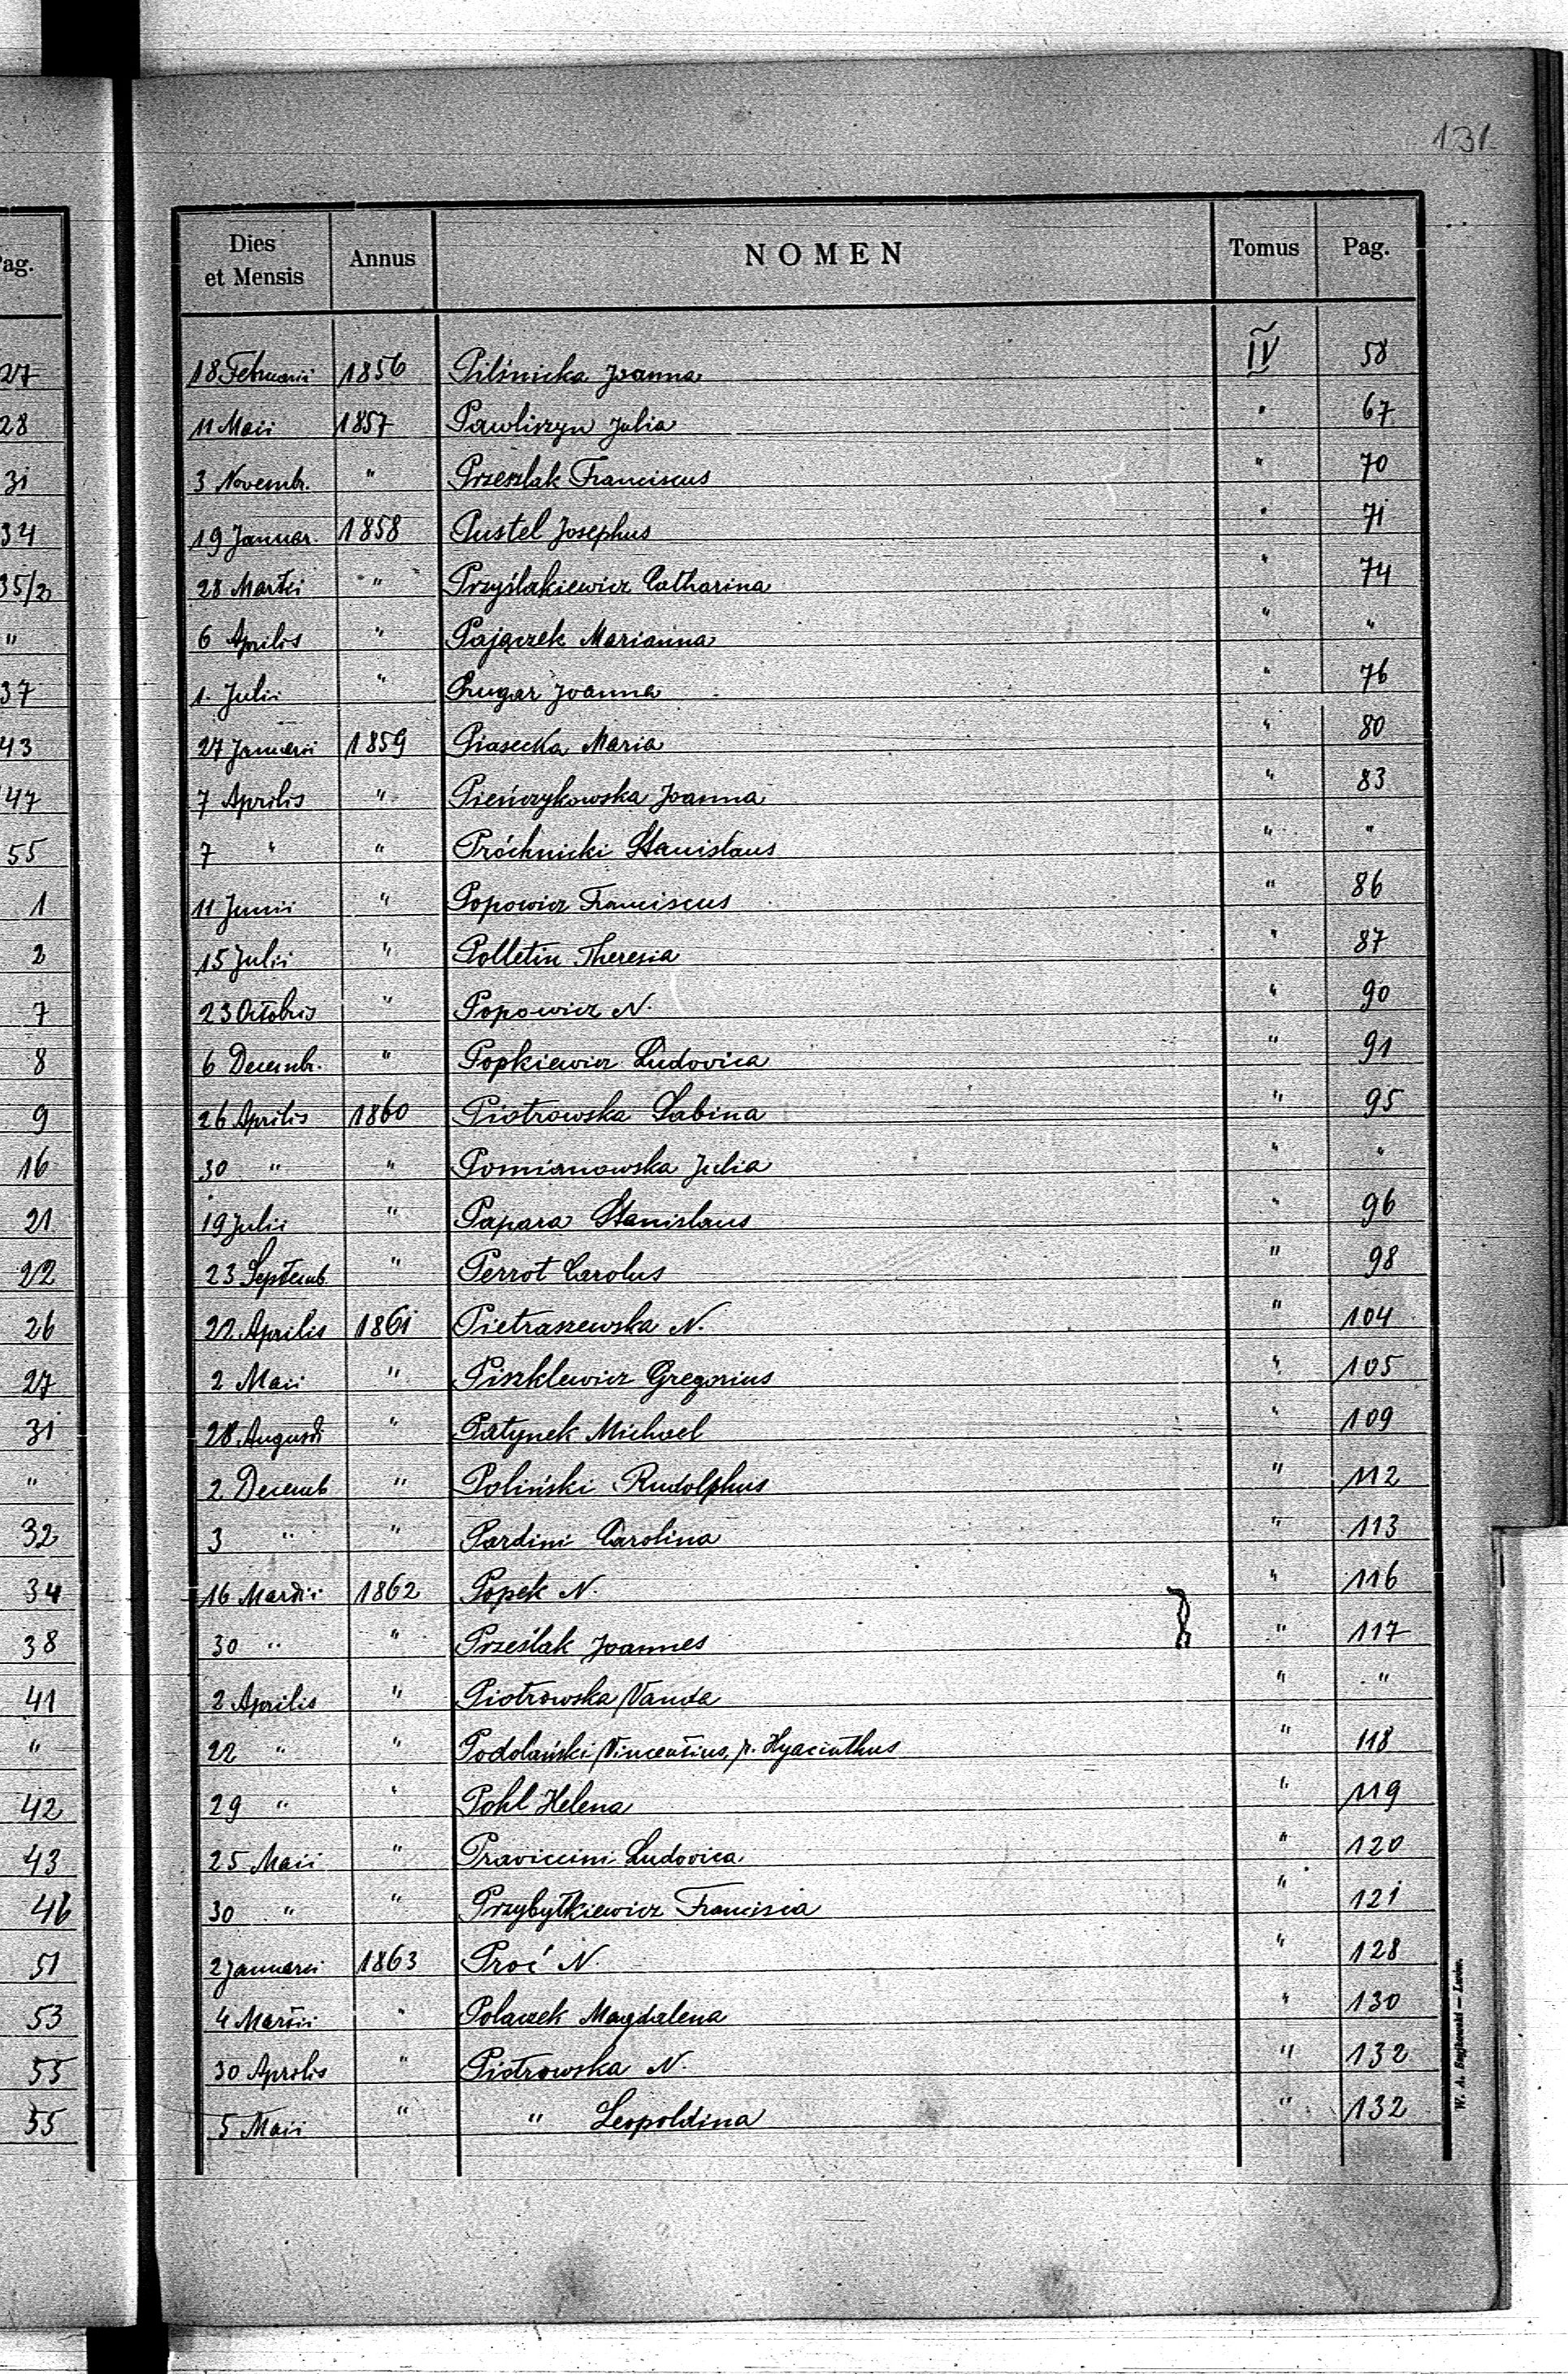 131.
Pag.
27
28
31
34
35/2
"
37
43
47
55
1
2
7
8
9
16
21
22
26
27
31
"
32
34
38
41
"
42
43
46
51
53
55
55
Dies et Mensis Annus NOMEN Tomus Pag.
18 Februarii 1856 Pilśnicka Joanna IV 58
11 Maii 1857 Pawliszyn Julia " 67
3 Novembr. " Przeszlak Franciscus " 70
19 Januar. 1858 Pustel Josephus " 71
28 Martii " Przyślakiewicz Catharina " 74
6 Aprilis " Pajączek Marianna " "
1. Julii " Joanna " 76
27 Januarii 1859 Piasecka Maria " 80
7 Aprilis " Pieńczykowska Joanna " 83
7 " " Próchnicki Stanislaus " "
11 Junii " Popowicz Franciscus " 86
15 Julii " Polletin Theresia " 87
23 Octobris " Popowicz N. " 90
6 Decembr. " Popkiewicz Ludovica " 91
26 Aprilis 1860 Piotrowska Sabina " 95
30 " " Pomianowska Julia " "
19 Julii " Papara Stanislaus " 96
23 Septemb. " Perrot Carolus " 98
22 Aprilis 1861 Pietraszewska N. " 104
2 Maii " Piszklewicz Gregorius " 105
28 Augusti " Patynek Michael " 109
2 Decemb " Poliński Rudolphus " 112
3 " " Pardini Carolina " 113
16 Martii 1862 Popek N. " 116
30 " " Prześlak Joannes " 117
2 Aprilis " Piotrowska Vanda " "
22 " " Podolański Vincentius, p. Hyacinthus " 118
29 " " Pohl Helena " 119
25 Maii " Praviccini Ludovica " 120
30 " " Przybytkiewicz Francisca " 121
2 Januarii 1863 Proć N. " 128
4 Martii " Polaczek Magdalena " 130
30 Aprilis " Piotrowska N. " 132
5 Maii " " Leopoldina " 132
W. A. — Lwów.